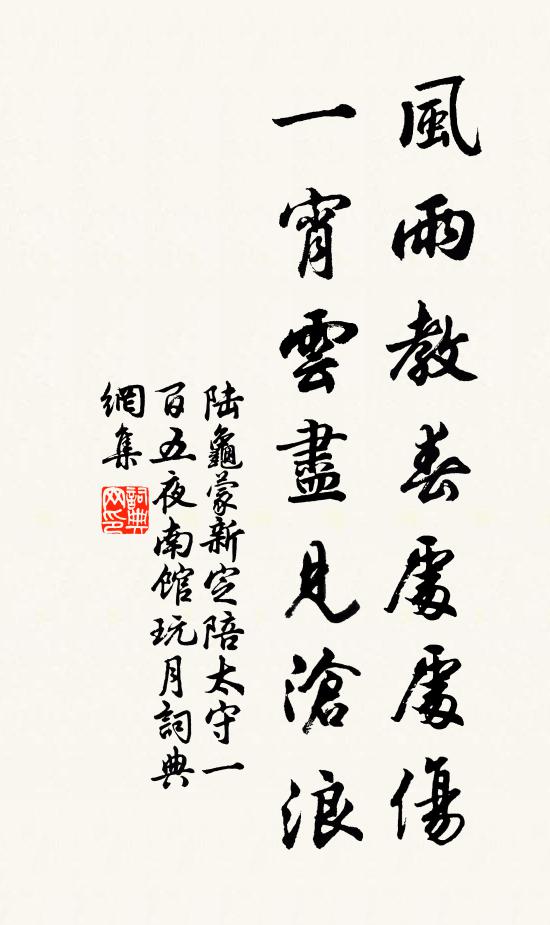 風雨教春處處傷
一宵雲盡見滄浪
陸龜蒙新定陪太守一
百五夜南館玩月詞典
網集
詞典
网印